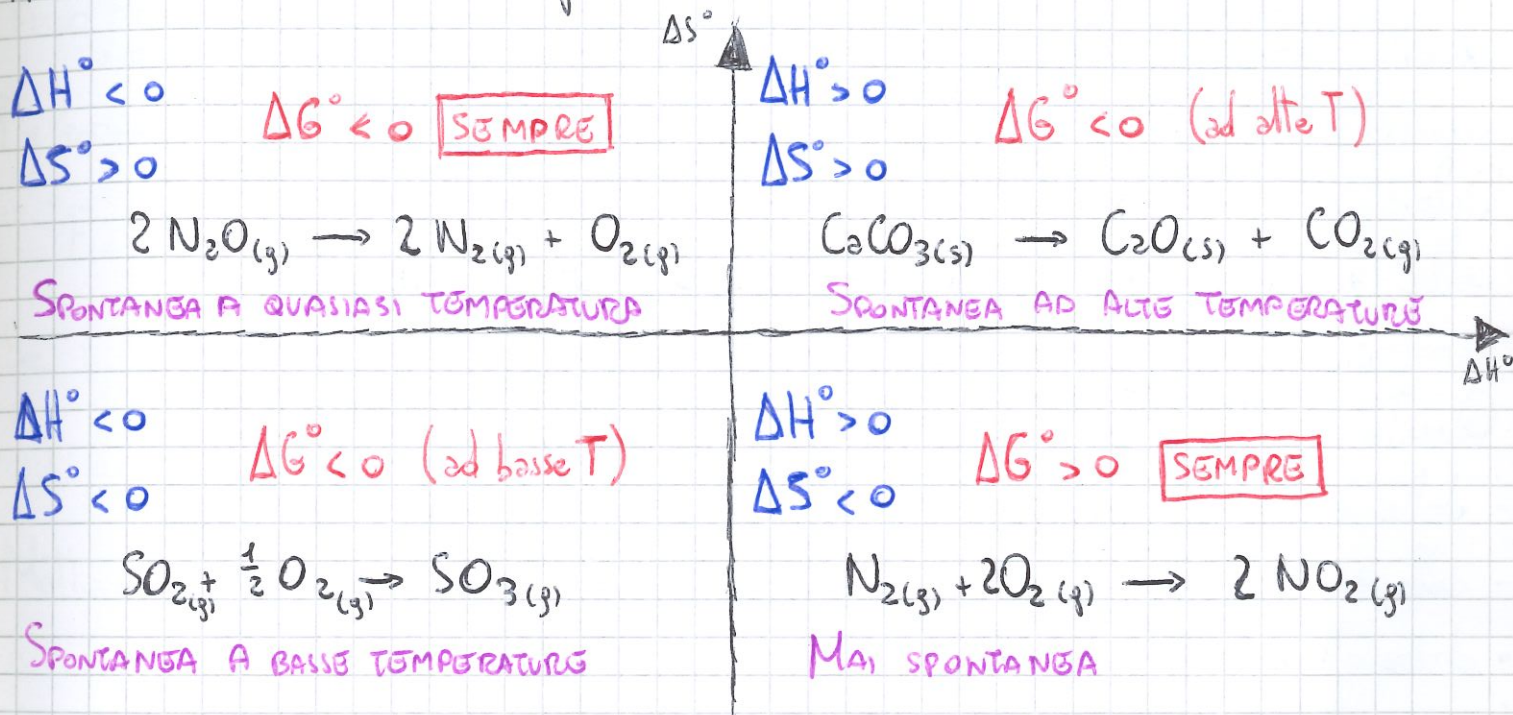 ΔS°
ΔH° < 0
ΔG° < 0 SEMPRE
ΔS° > 0
2 N₂O(g) → 2 N₂(g) + O₂(g)
SPONTANEA A QUASIASI TEMPERATURA
ΔH° > 0
ΔG° < 0 (ad alte T)
ΔS° > 0
CaCO₃(s) → CaO(s) + CO₂(g)
SPONTANEA AD ALTE TEMPERATURE
ΔH°
ΔH° < 0
ΔG° < 0 (ad basse T)
ΔS° < 0
SO₂(g) + ½ O₂(g) → SO₃(g)
SPONTANEA A BASSE TEMPERATURE
ΔH° > 0
ΔG° > 0 SEMPRE
ΔS° < 0
N₂(g) + 2O₂(g) → 2 NO₂(g)
MAI SPONTANEA